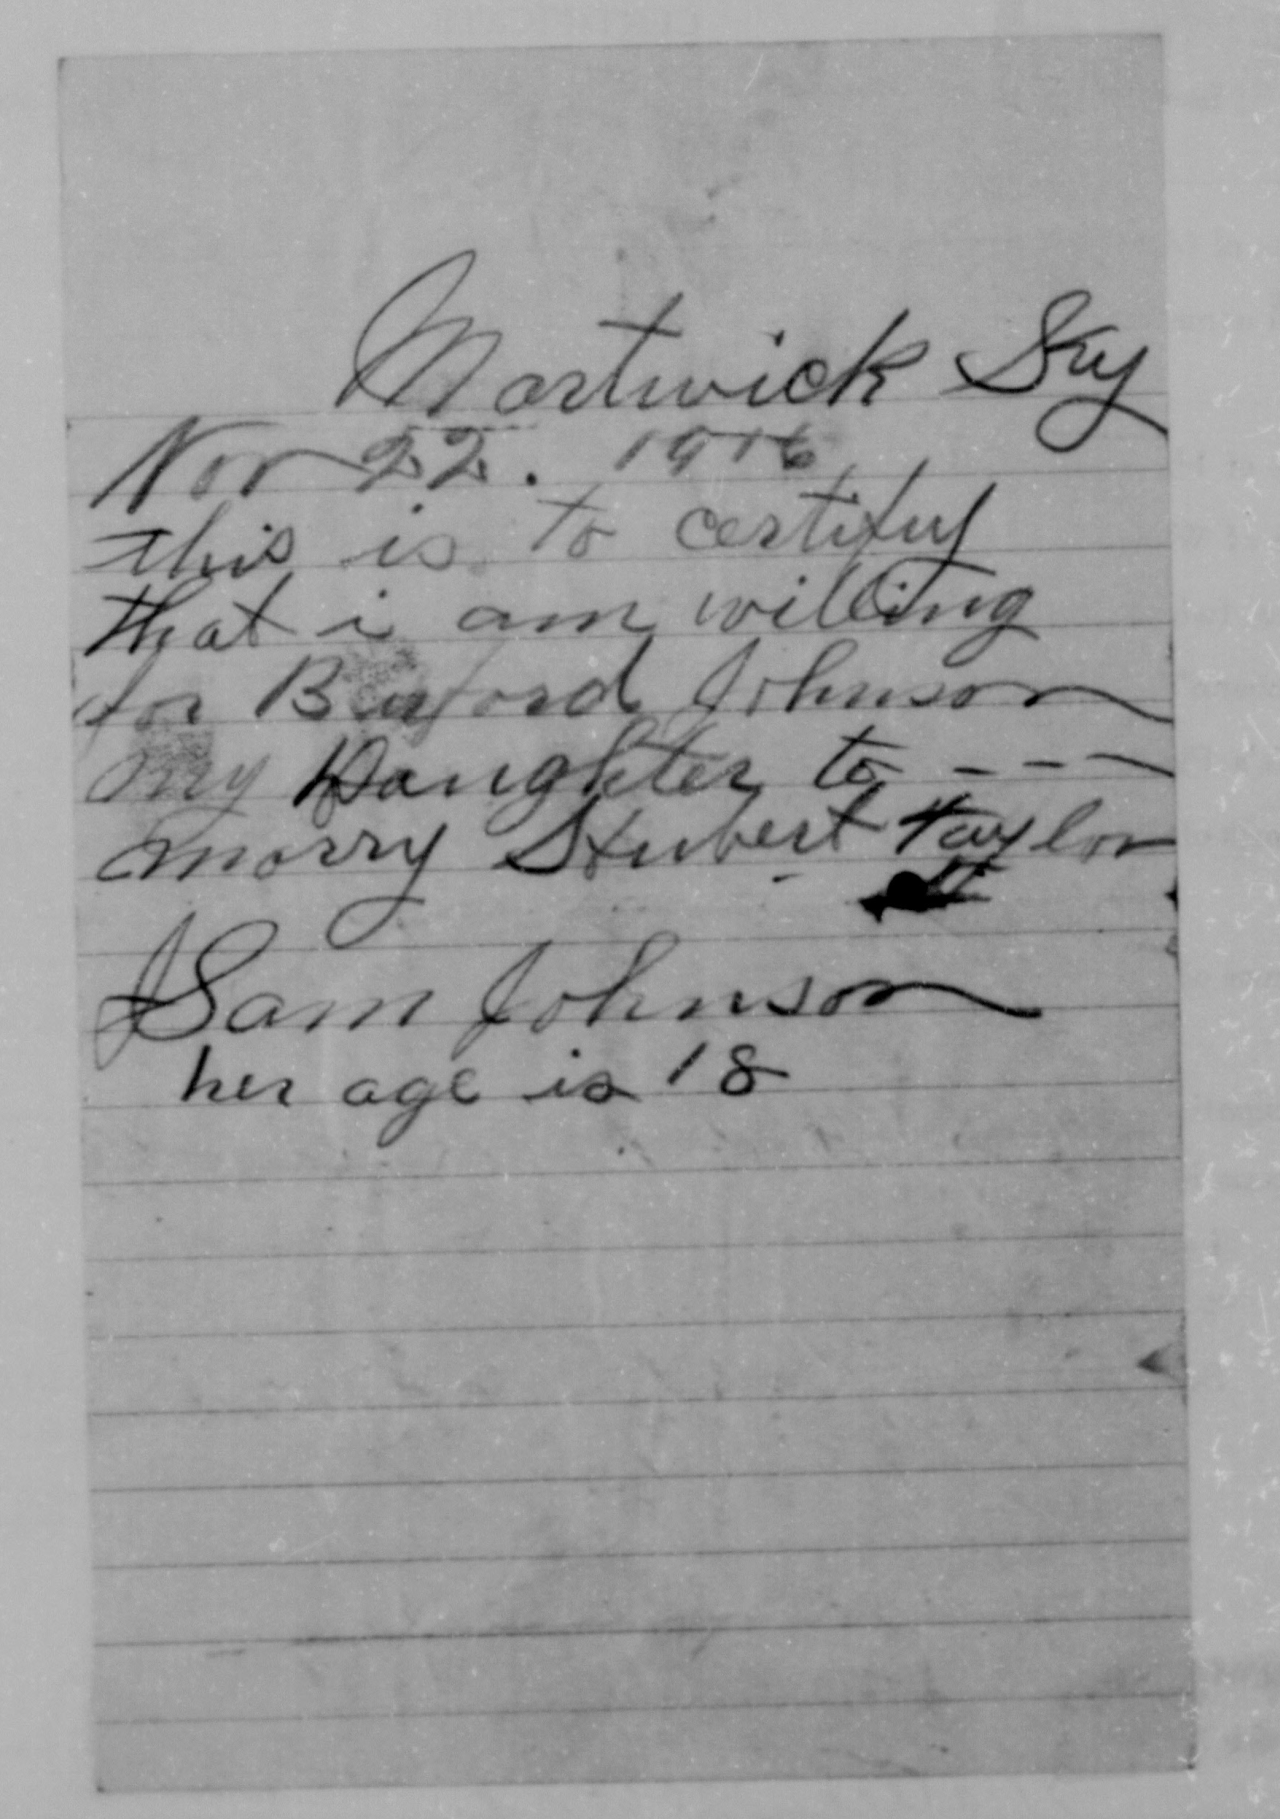 Martwick Ky
Nov 22. 1916
this is to certify
that i am willing
for Buford Johnson
my Daughter to - - -
marry Hubert taylor
Sam Johnson
her age is 18